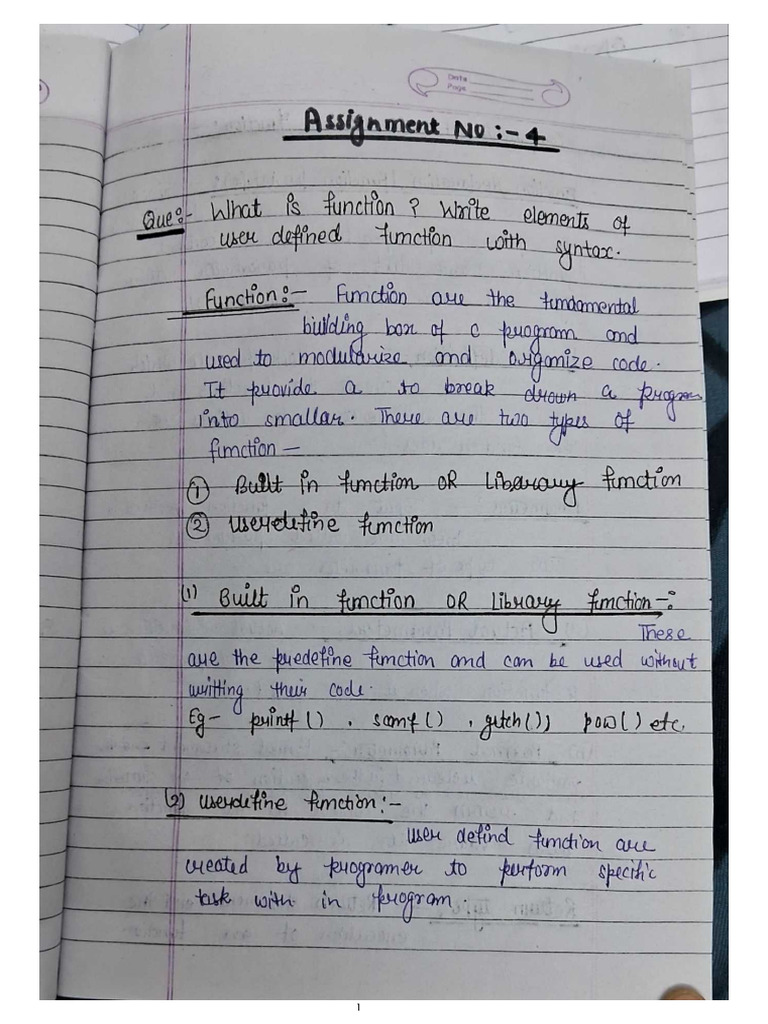 Date
Page
Assignment No :- 4
Que:- What is function ? Write elements of
user defined function with syntax.
Function :- Function are the fundamental
building box of c program and
used to modularize and organize code.
It provide a to break drown a program
into smallar. There are two types of
function -
① Built in function OR Library function
② Userdefine function
(1) Built in function OR Library function -:
These
are the predefine function and can be used without
writting their code.
Eg- printf ( ) , scanf ( ) , getch ( ) ; pow ( ) etc.
(2) Userdefine function :-
User defind function are
created by programer to perform specific
task with in program.
1